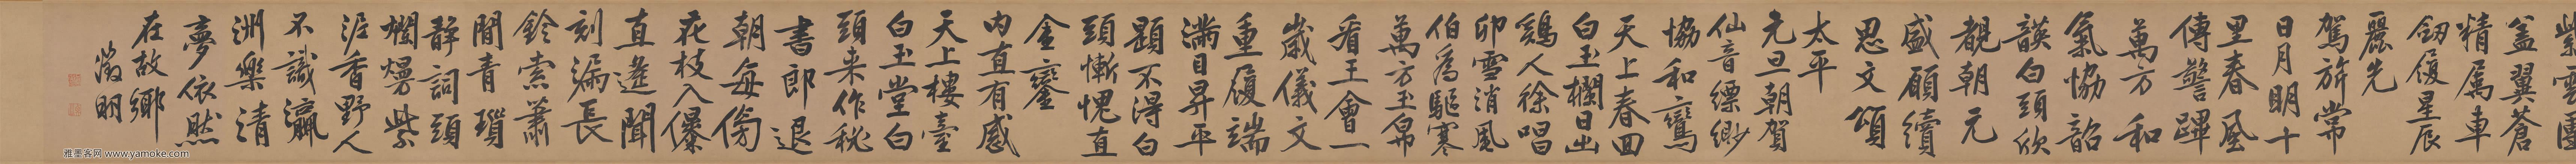 紫雲團
蓋翼蒼
精屬車
劔履星辰
麗光
駕旂常
日月明十
里春風
傳警蹕
萬方和
氣協韶
韺白頭欣
覩朝元
盛願續
思文頌
太平
元旦朝賀
仙音縹緲
協和鸞
天上春回
白玉欄日出
鷄人徐唱
卯雪消風
伯為驅寒
萬方玉帛
看王會一
歲儀文
重履端
滿目昇平
題不得白
頭慚愧直
金鑾
內直有感
天上樓臺
白玉堂白
頭來作秘
書郎退
朝每傍
花枝入儤
直遥聞
刻漏長
鈴索蕭
閒青瑣
靜詞頭
爛熳紫
泥香野人
不識瀛
洲樂清
夢依然
在故鄉
徵明
雅墨客网 www.yamoke.com